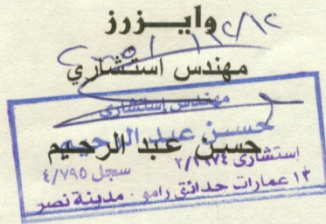 وايـــزرز
مهندس استشاري
مهندس إستشارى
حسن عبد الرحيم
حسن عبد الرحيم
استشارى ٢/١٩٧٤ سجل ٤/٧٩٥
١٢ عمارات حدائق رامو - مدينة نصر